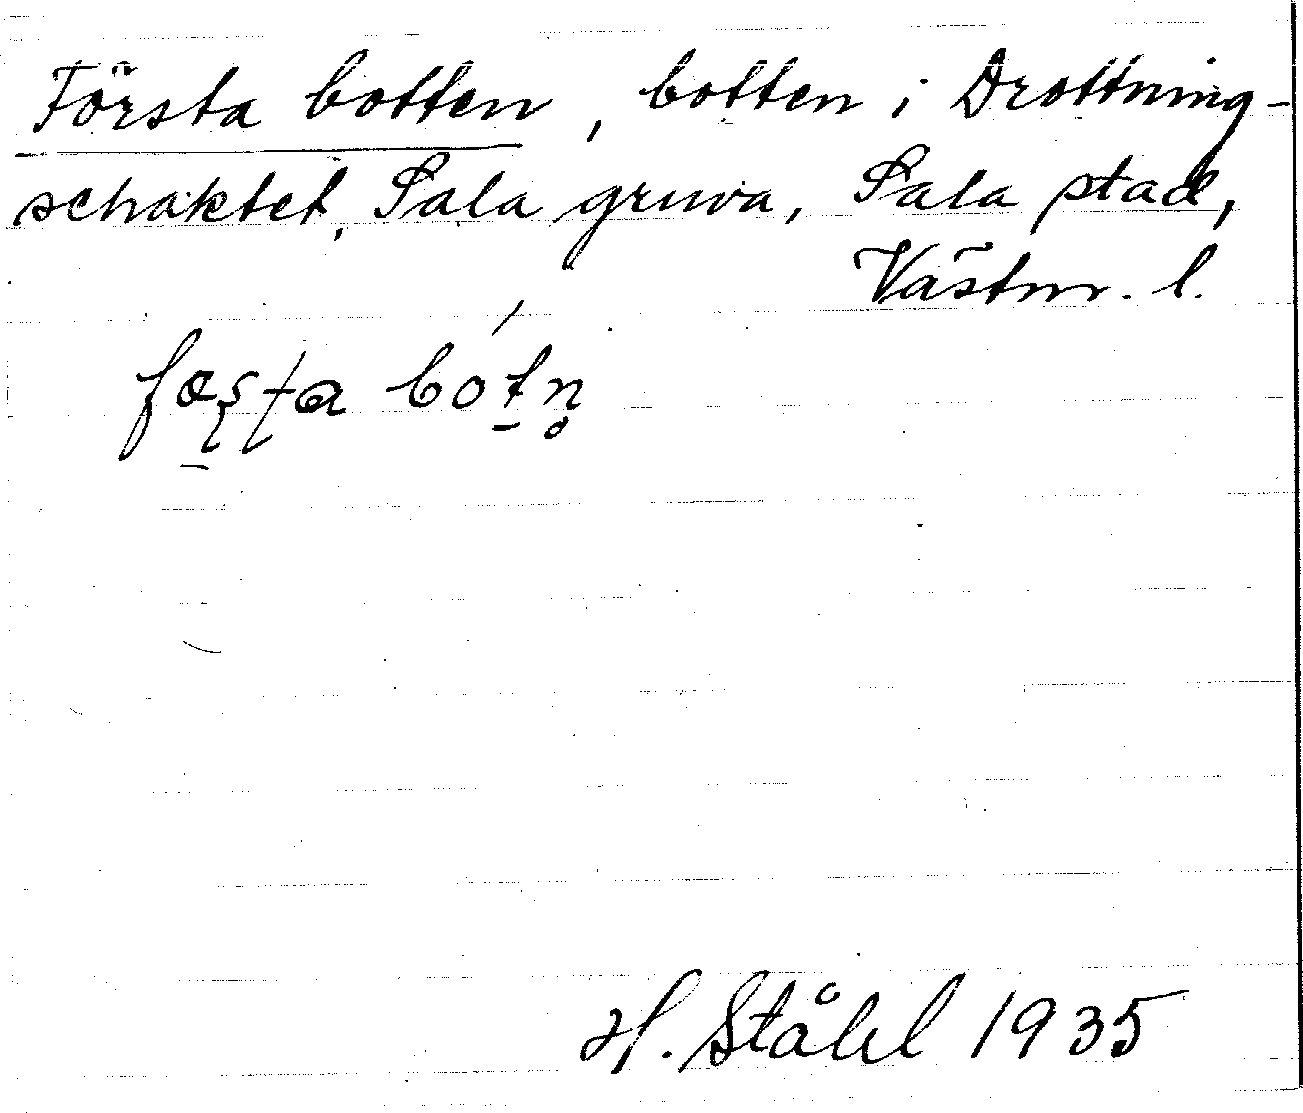 Första botten, botten i Drottning-
schaktet, Sala gruva, Sala stad,
Västm. l.
fœʂʈa bótn̥
H. Ståhl 1935